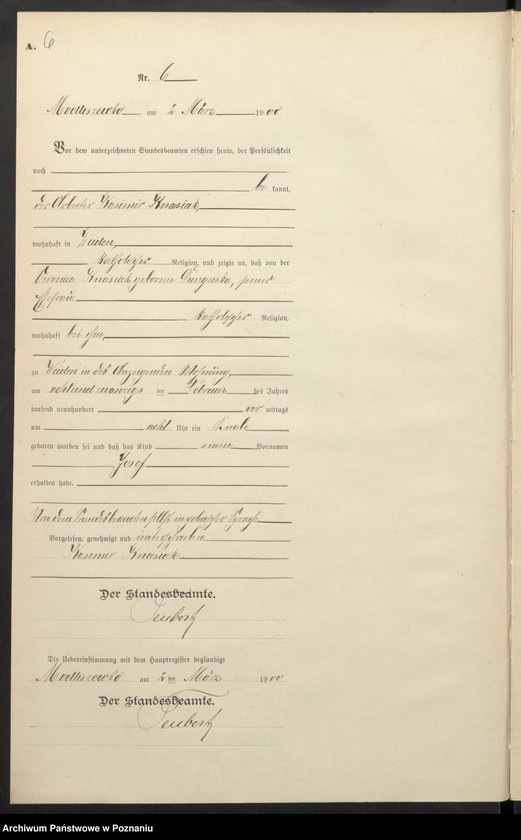 A. 6
Nr. 6
am 2 März 1900
Vor dem unterzeichneten Standesbeamten erschien heute, der Persönlichkeit
nach
be kannt,
der Arbeiter Kasimir Knasiak,
wohnhaft in Weiden,
katholischer Religion, und zeigte an, daß von der
Knasiak geborene seiner
Ehefrau
katholischer Religion,
wohnhaft bei ihm,
zu Weiden in des Anzeigenden Wohnung,
am achtundzwanzigsten Februar des Jahres
tausend neunhundert vor mittags
um acht Uhr ein Knabe
geboren worden sei und daß das Kind einen Vornamen
Josef
erhalten habe.
Von dem Standesbeamten selbst in polnischer Sprache
Vorgelesen, genehmigt und unterschrieben
Kasimir Knasiak
Der Standesbeamte.
Die Uebereinstimmung mit dem Hauptregister beglaubigt
am 2 ten März 1900
Der Standesbeamte.
Archiwum Państwowe w Poznaniu